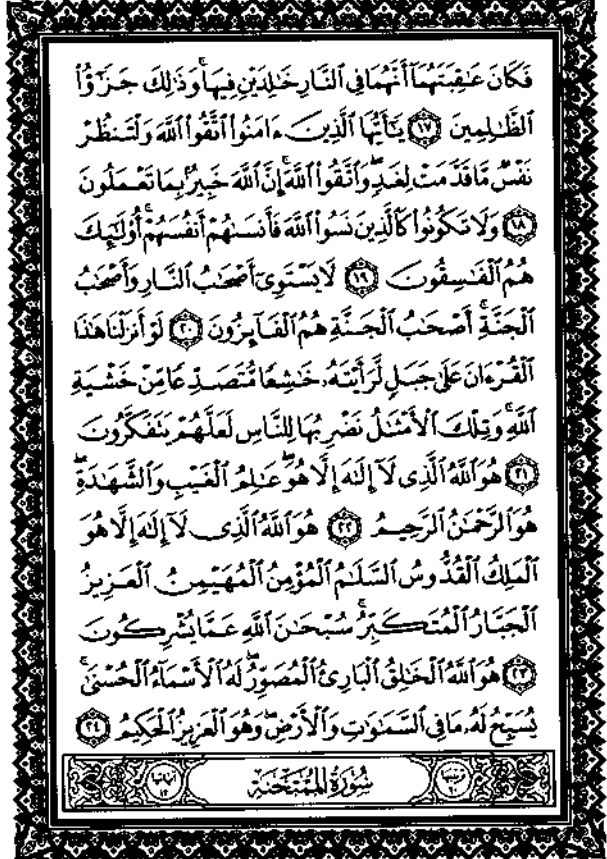 فَكَانَ عَـٰقِبَتَهُمَآ أَنَّهُمَا فِى ٱلنَّارِ خَـٰلِدَيْنِ فِيهَا ۚ وَذَٰلِكَ جَزَٰٓؤُا۟
ٱلظَّـٰلِمِينَ ١٧ يَـٰٓأَيُّهَا ٱلَّذِينَ ءَامَنُوا۟ ٱتَّقُوا۟ ٱللَّهَ وَلْتَنظُرْ
نَفْسٌ مَّا قَدَّمَتْ لِغَدٍ ۖ وَٱتَّقُوا۟ ٱللَّهَ ۚ إِنَّ ٱللَّهَ خَبِيرٌۢ بِمَا تَعْمَلُونَ
١٨ وَلَا تَكُونُوا۟ كَٱلَّذِينَ نَسُوا۟ ٱللَّهَ فَأَنسَىٰهُمْ أَنفُسَهُمْ ۚ أُو۟لَـٰٓئِكَ
هُمُ ٱلْفَـٰسِقُونَ ١٩ لَا يَسْتَوِىٓ أَصْحَـٰبُ ٱلنَّارِ وَأَصْحَـٰبُ
ٱلْجَنَّةِ ۚ أَصْحَـٰبُ ٱلْجَنَّةِ هُمُ ٱلْفَآئِزُونَ ٢٠ لَوْ أَنزَلْنَا هَـٰذَا
ٱلْقُرْءَانَ عَلَىٰ جَبَلٍ لَّرَأَيْتَهُۥ خَـٰشِعًا مُّتَصَدِّعًا مِّنْ خَشْيَةِ
ٱللَّهِ ۚ وَتِلْكَ ٱلْأَمْثَـٰلُ نَضْرِبُهَا لِلنَّاسِ لَعَلَّهُمْ يَتَفَكَّرُونَ
٢١ هُوَ ٱللَّهُ ٱلَّذِى لَآ إِلَـٰهَ إِلَّا هُوَ ۖ عَـٰلِمُ ٱلْغَيْبِ وَٱلشَّهَـٰدَةِ ۖ
هُوَ ٱلرَّحْمَـٰنُ ٱلرَّحِيمُ ٢٢ هُوَ ٱللَّهُ ٱلَّذِى لَآ إِلَـٰهَ إِلَّا هُوَ
ٱلْمَلِكُ ٱلْقُدُّوسُ ٱلسَّلَـٰمُ ٱلْمُؤْمِنُ ٱلْمُهَيْمِنُ ٱلْعَزِيزُ
ٱلْجَبَّارُ ٱلْمُتَكَبِّرُ ۚ سُبْحَـٰنَ ٱللَّهِ عَمَّا يُشْرِكُونَ
٢٣ هُوَ ٱللَّهُ ٱلْخَـٰلِقُ ٱلْبَارِئُ ٱلْمُصَوِّرُ ۖ لَهُ ٱلْأَسْمَآءُ ٱلْحُسْنَىٰ ۚ
يُسَبِّحُ لَهُۥ مَا فِى ٱلسَّمَـٰوَٰتِ وَٱلْأَرْضِ ۖ وَهُوَ ٱلْعَزِيزُ ٱلْحَكِيمُ ٢٤
ترتيبها ٦٠ سُورَةُ المُمْتَحنَةِ آياتها ١٣